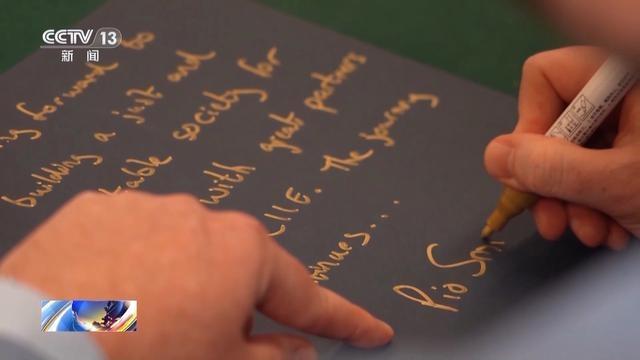 CCTV 13
新闻
forward to
building a just and
society for
with great partners
. The journey
...
Pio Sm